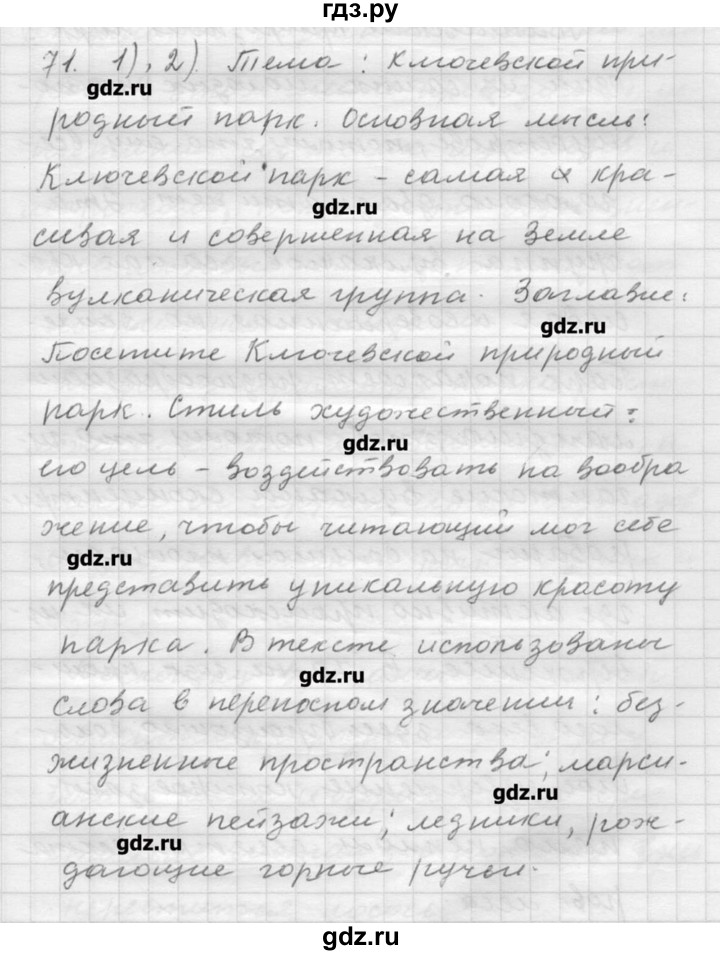 гдз.ру
71. 1), 2). Тема: Ключевской при-
gdz.ru
родный парк. Основная мысль:
Ключевской парк - самая кра-
gdz.ru
сивая и совершенная на Земле
вулканическая группа. Заглавие:
gdz.ru
Посетите Ключевской природный
парк. Стиль художественный:
gdz.ru
его цель - воздействовать на вообра
жение, чтобы читающий мог себе
gdz.ru
представить уникальную красоту
парка. В тексте использованы
gdz.ru
слова в переносном значении: без-
жизненные пространства; марси-
gdz.ru
анские пейзажи; ледники, рож-
gdz.ru
дающие горные ручьи.
gdz.ru